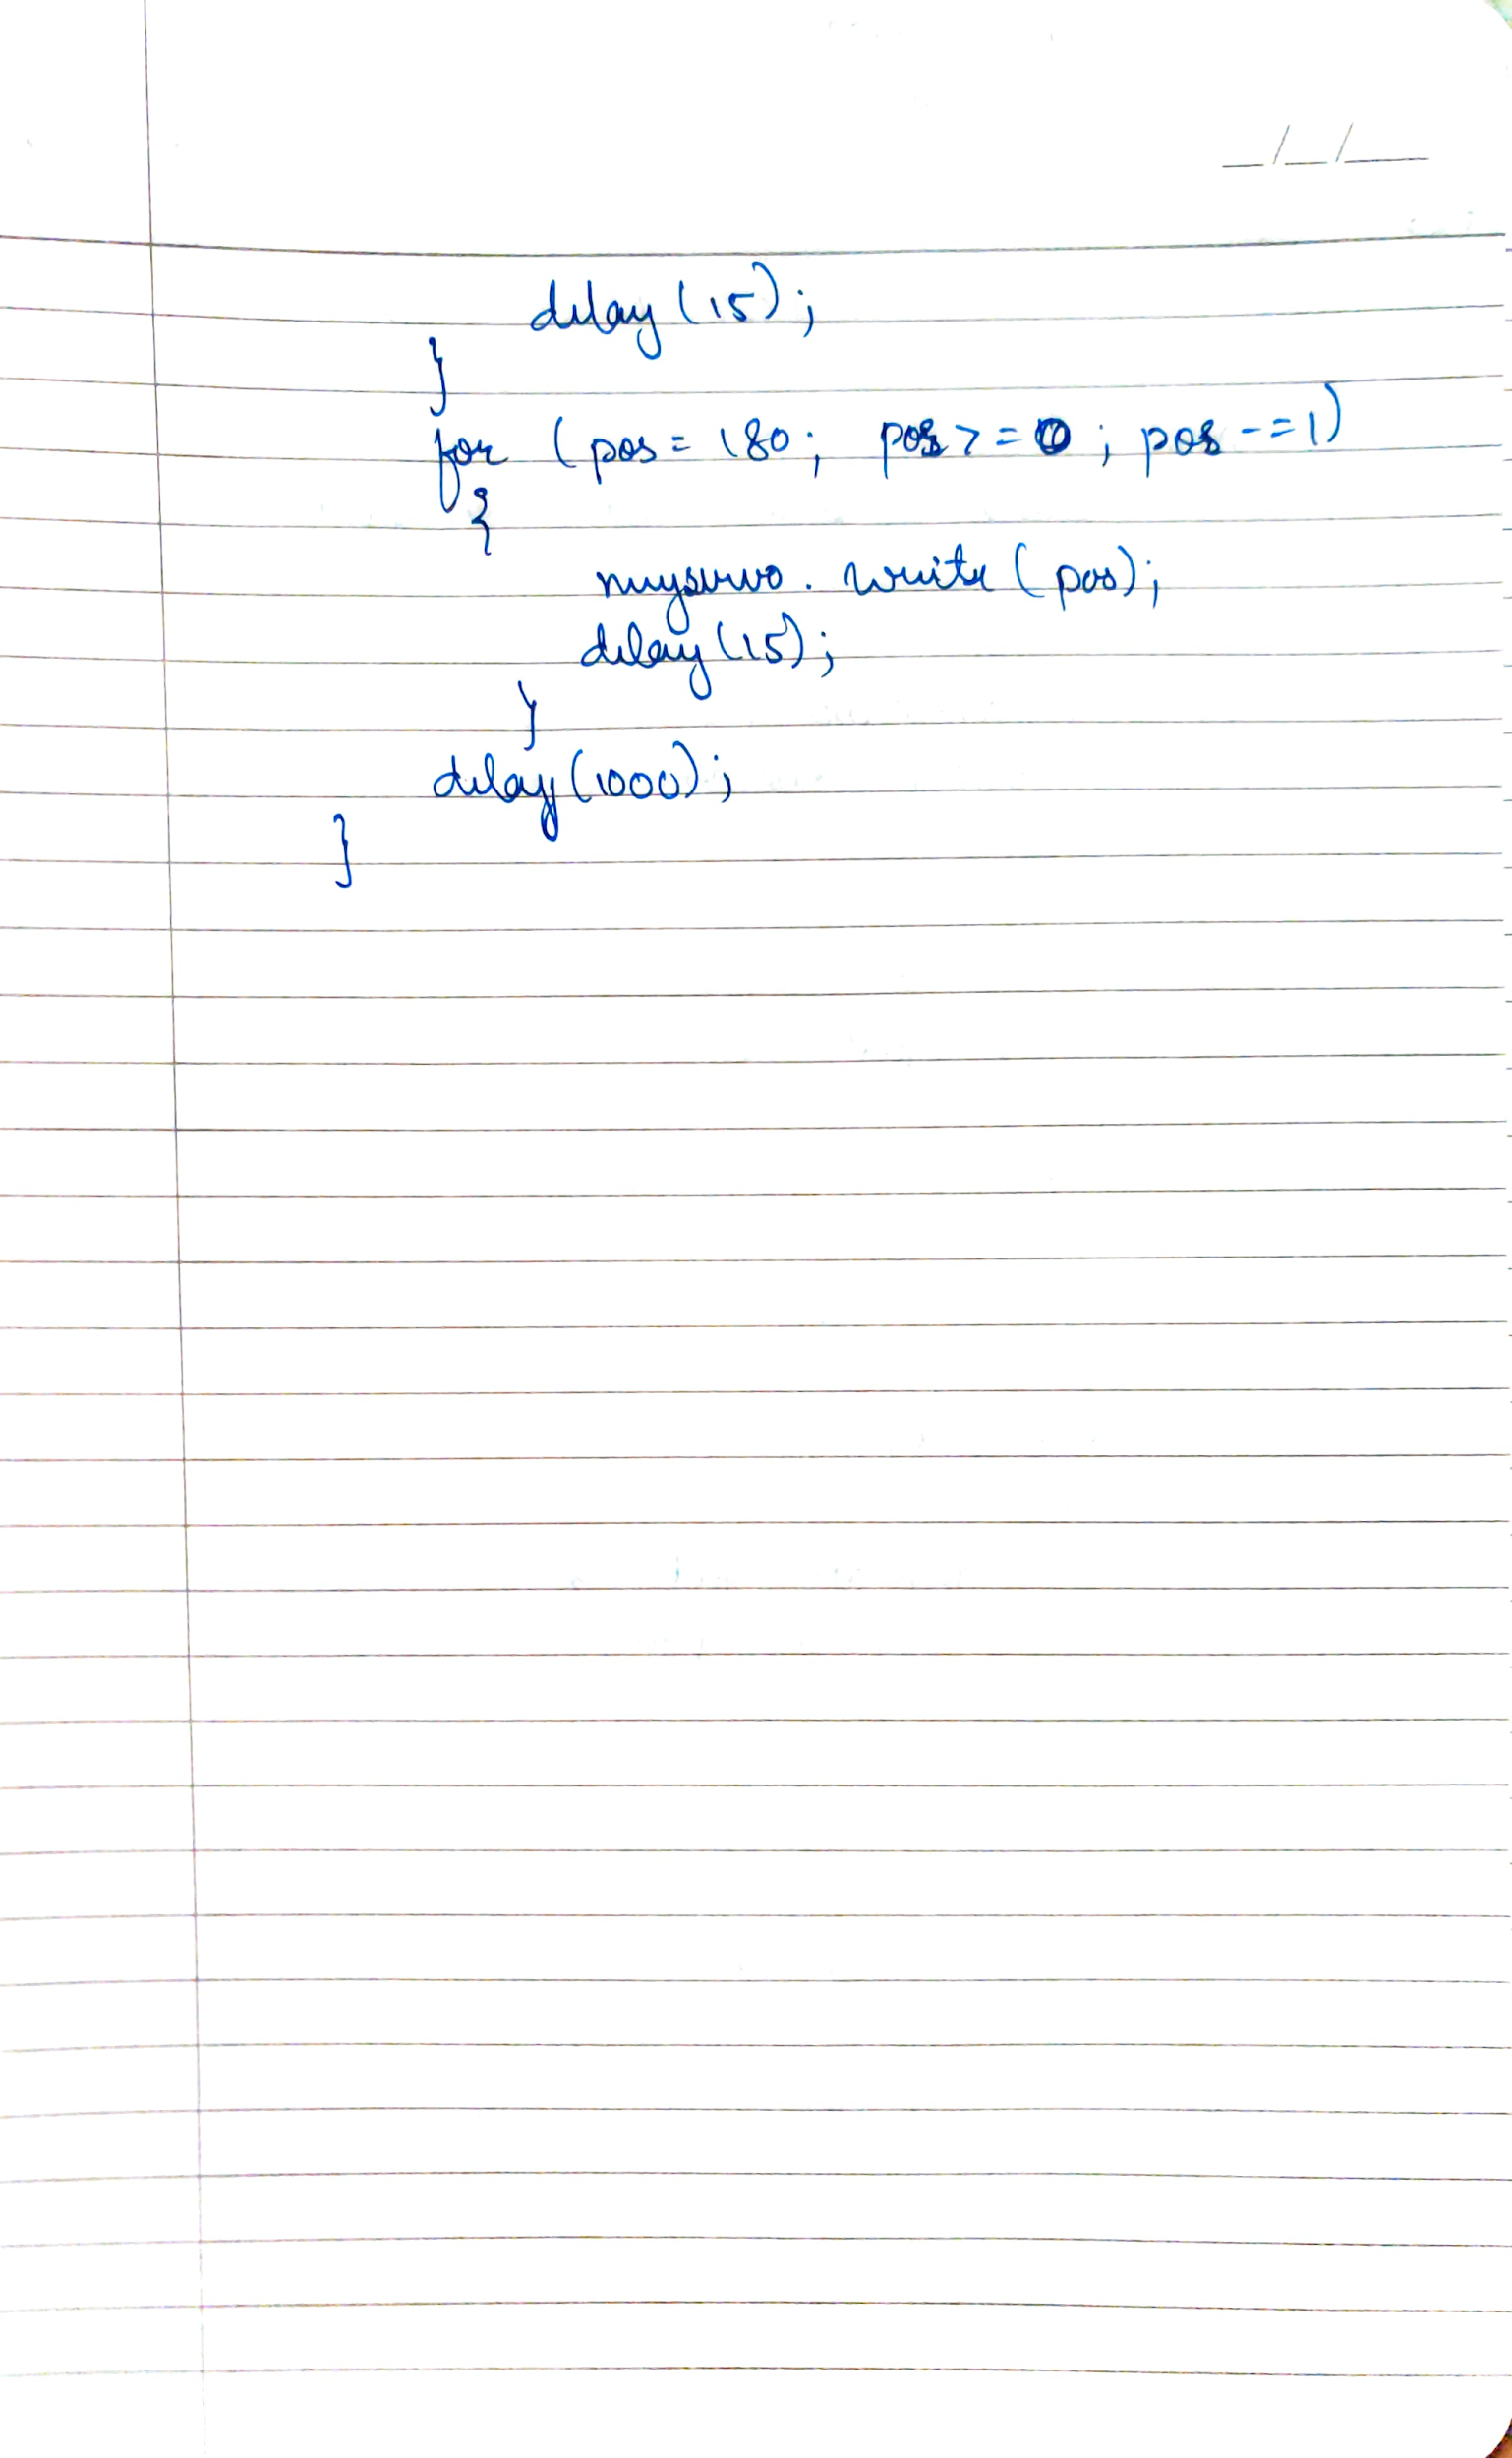 __/__/____
delay (15);
}
for (pos = 180; pos >= 0; pos -= 1)
{
myservo. write (pos);
delay (15);
}
delay (1000);
}